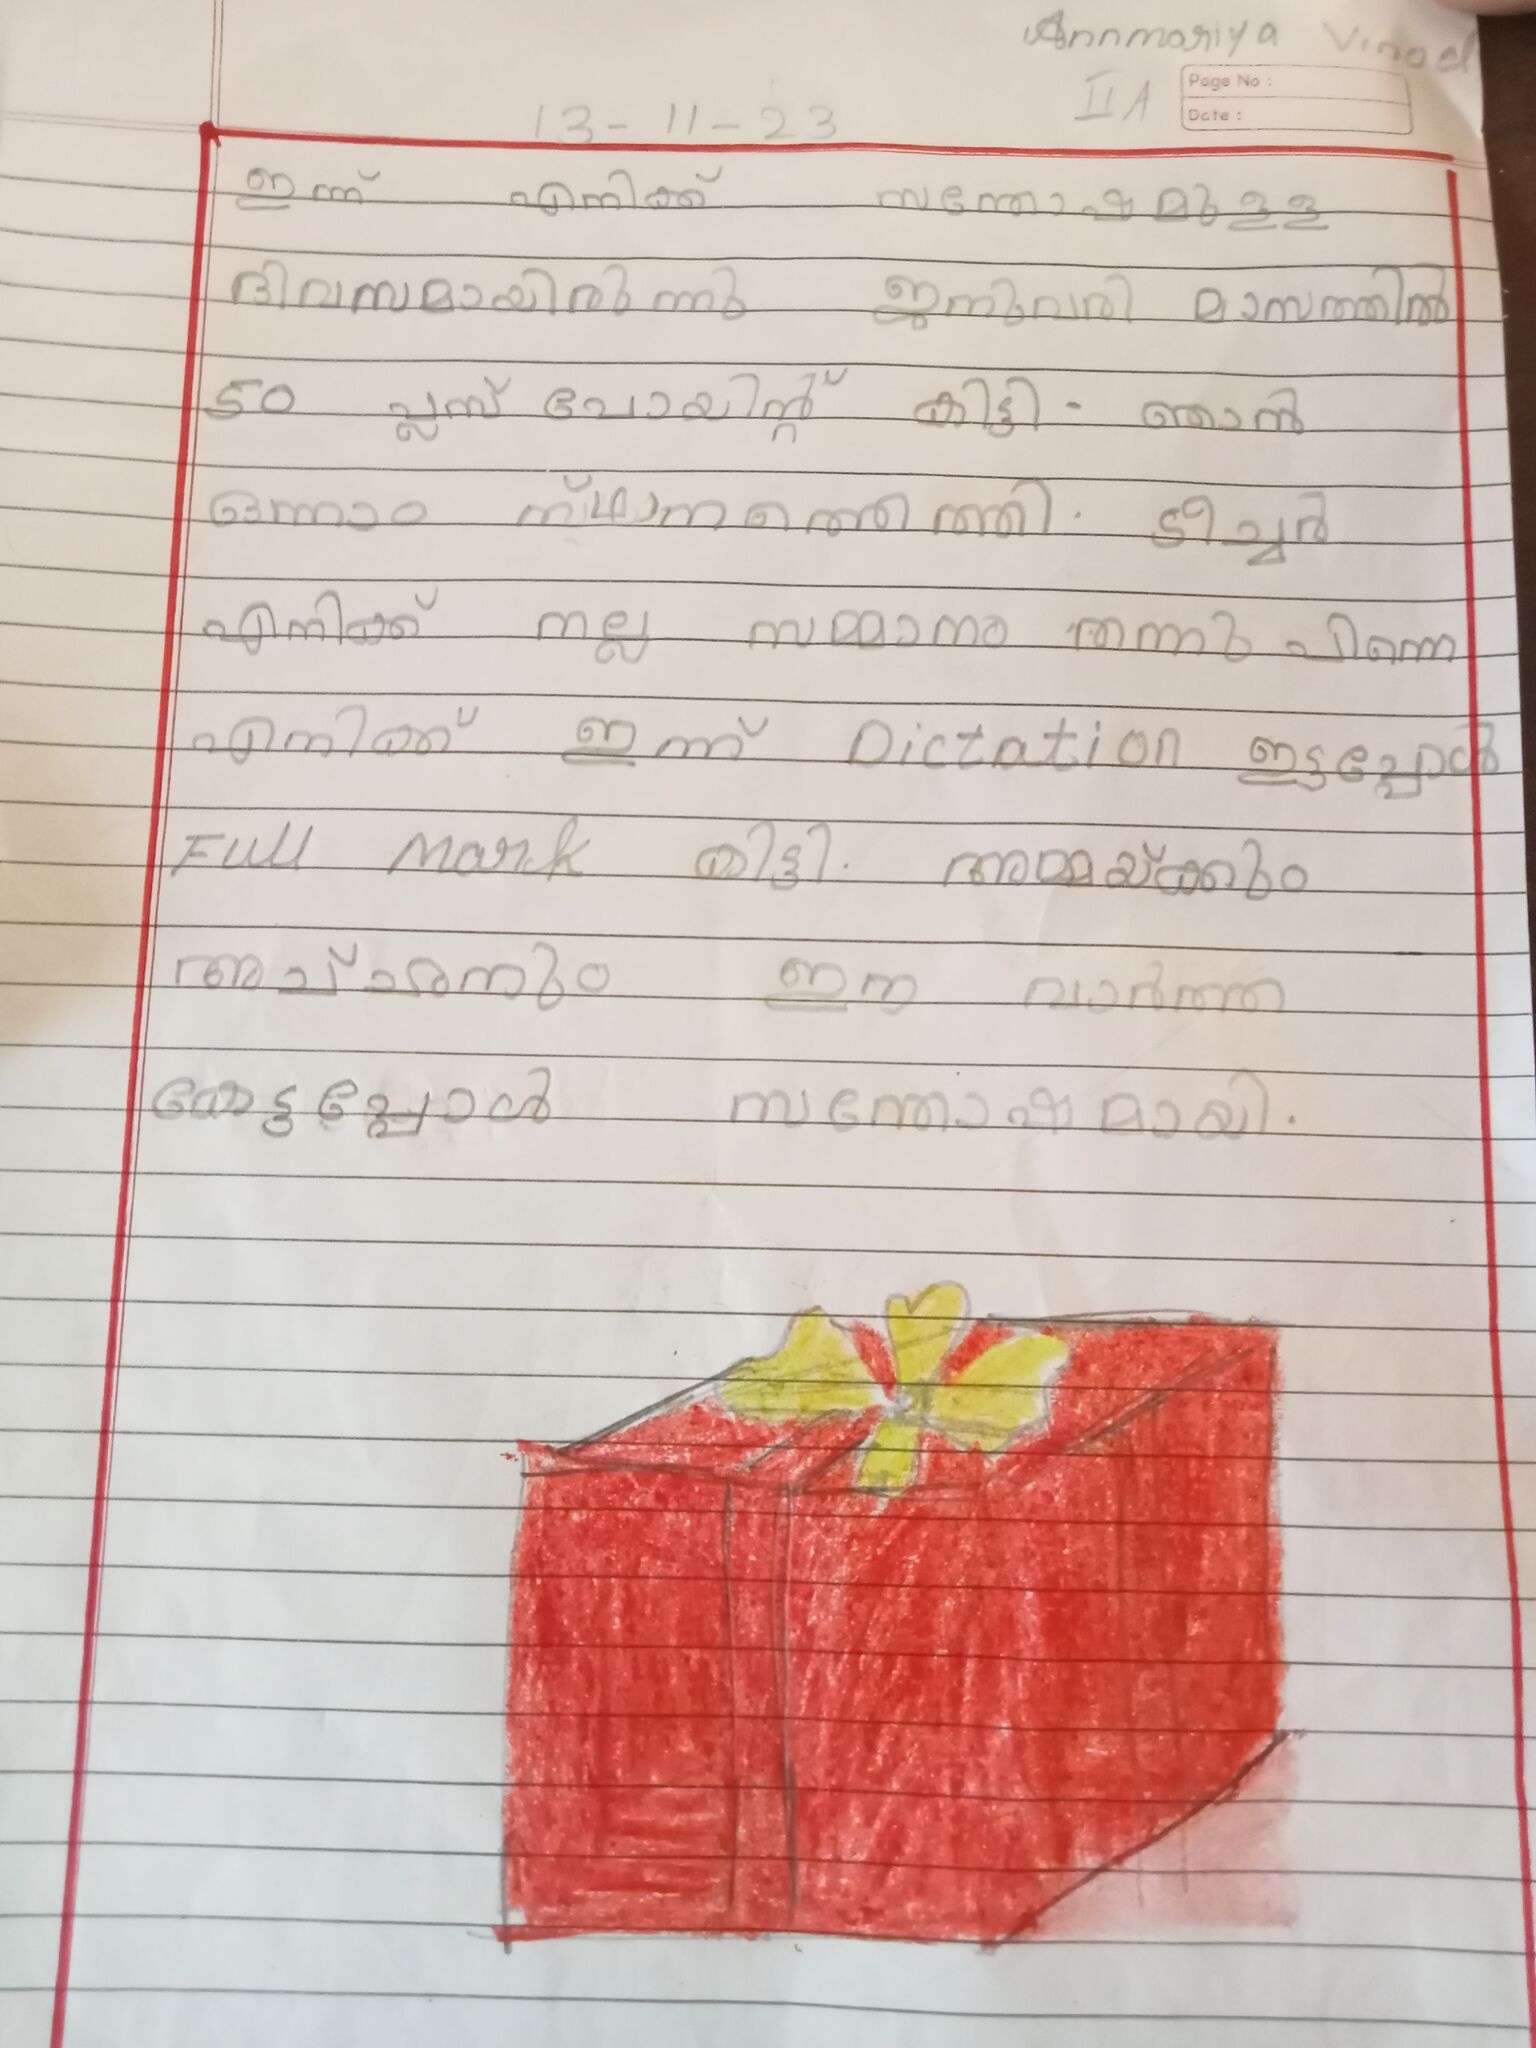 Annmariya Vinod
II A
Page No :
Date :
13-11-23
ഇന്ന് എനിക്ക് സന്തോഷമുളള
ദിവസമായിരുന്നു ജനുവരി മാസത്തിൽ
50 പ്ലസ് പോയിന്റ് കിട്ടി. ഞാൻ
ഒന്നാം സ്ഥാനത്തെത്തി. ടീച്ചർ
എനിക്ക് നല്ല സമ്മാനം തന്നു പിന്നെ
എനിക്ക് ഇന്ന് Dictation ഇട്ടപ്പോൾ
Full Mark കിട്ടി. അമ്മയ്ക്കും
അച്ചനും ഈ വാർത്ത
കേട്ടപ്പോൾ സന്തോഷമായി.